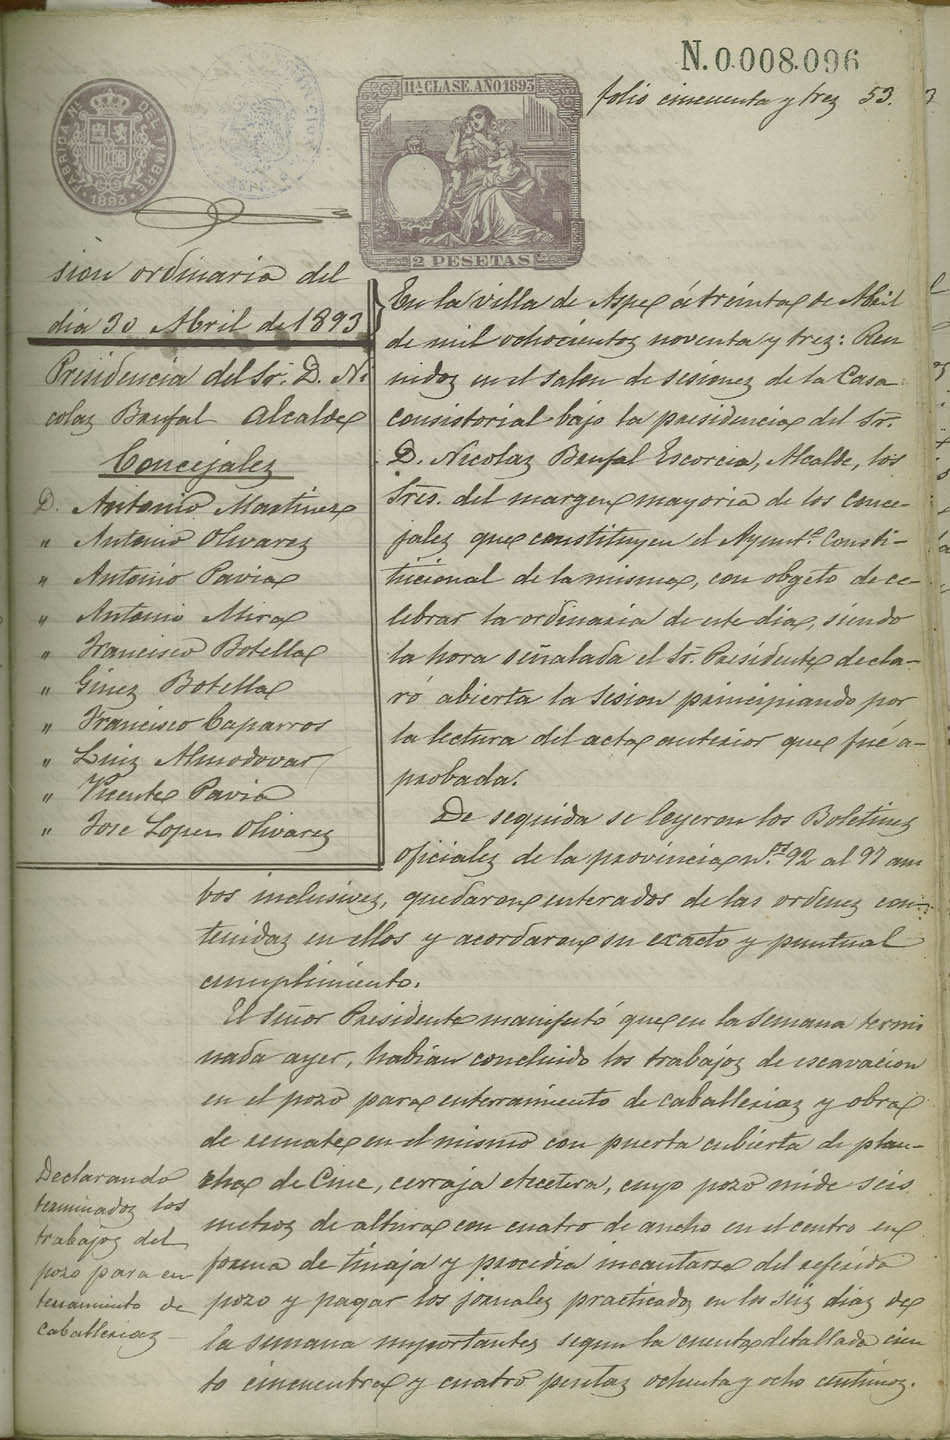 N.0.008.096
folio cincuenta y trez 53.
11ª CLASE. AÑO 1893
2 PESETAS
FABRICA NL. DEL TIMBRE
1893
sion ordinaria del
dia 30 Abril de 1893
Presidencia del Sr. D. Ni
colaz Brufal Alcalde
Concejalez
D. Antonio Martinez
" Antonio Olivarez
" Antonio Pavia
" Antonio Mira
" Francisco Botella
" Ginez Botella
" Francisco Caparros
" Luiz Almodovar
" Vicente Pavia
" Jose Lopez Olivarez
En la villa de Aspe á treinta de Abril
de mil ochocientoz noventa y trez: Reu
nidoz en el salon de sesionez de la Casa
consistorial bajo la presidencia del Sr.
D. Nicolaz Brufal Escorcia, Alcalde, los
Sres. del margen mayoria de los conce-
jalez que constituyen el Ayuntº. Consti-
tucional de la misma, con obgeto de ce-
lebrar la ordinaria de este dia, siendo
la hora señalada el Sr. Presidente decla-
ró abierta la sesion principiando por
la lectura del acta anterior que fué a-
probada.
De seguida se leyeron los Boletinez
oficialez de la provincia n.os 92 al 97 am
bos inclusivez, quedaron enterados de las ordenez con-
tenidaz en ellos y acordaron su exacto y puntual
cumplimiento.
El Señor Presidente manifestó que en la semana termi
nada ayer, habian concluido los trabajoz de escavacion
en el pozo para enterramiento de caballeriaz y obra
de remate en el mismo con puerta cubierta de plan-
cha de Cinc, cerraja etcetera, cuyo pozo mide seis
metroz de altura con cuatro de ancho en el centro en
forma de tinaja y procedia incautarse del referido
pozo y pagar los jornalez practicadoz en los seiz diaz de
la semana importantez segun la cuenta detallada cien
to cincuenta y cuatro pesetaz ochenta y ocho centimoz.
Declarando
terminadoz los
trabajoz del
pozo para en
terramiento de
caballeriaz